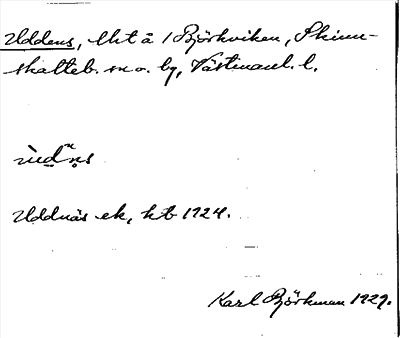 Uddens, lht å 1 Björkviken, Skinn-
skatteb. sn o. bg, Västmanl. l.
Uddnäs ek, kb 1924.
Karl Björkman 1929.